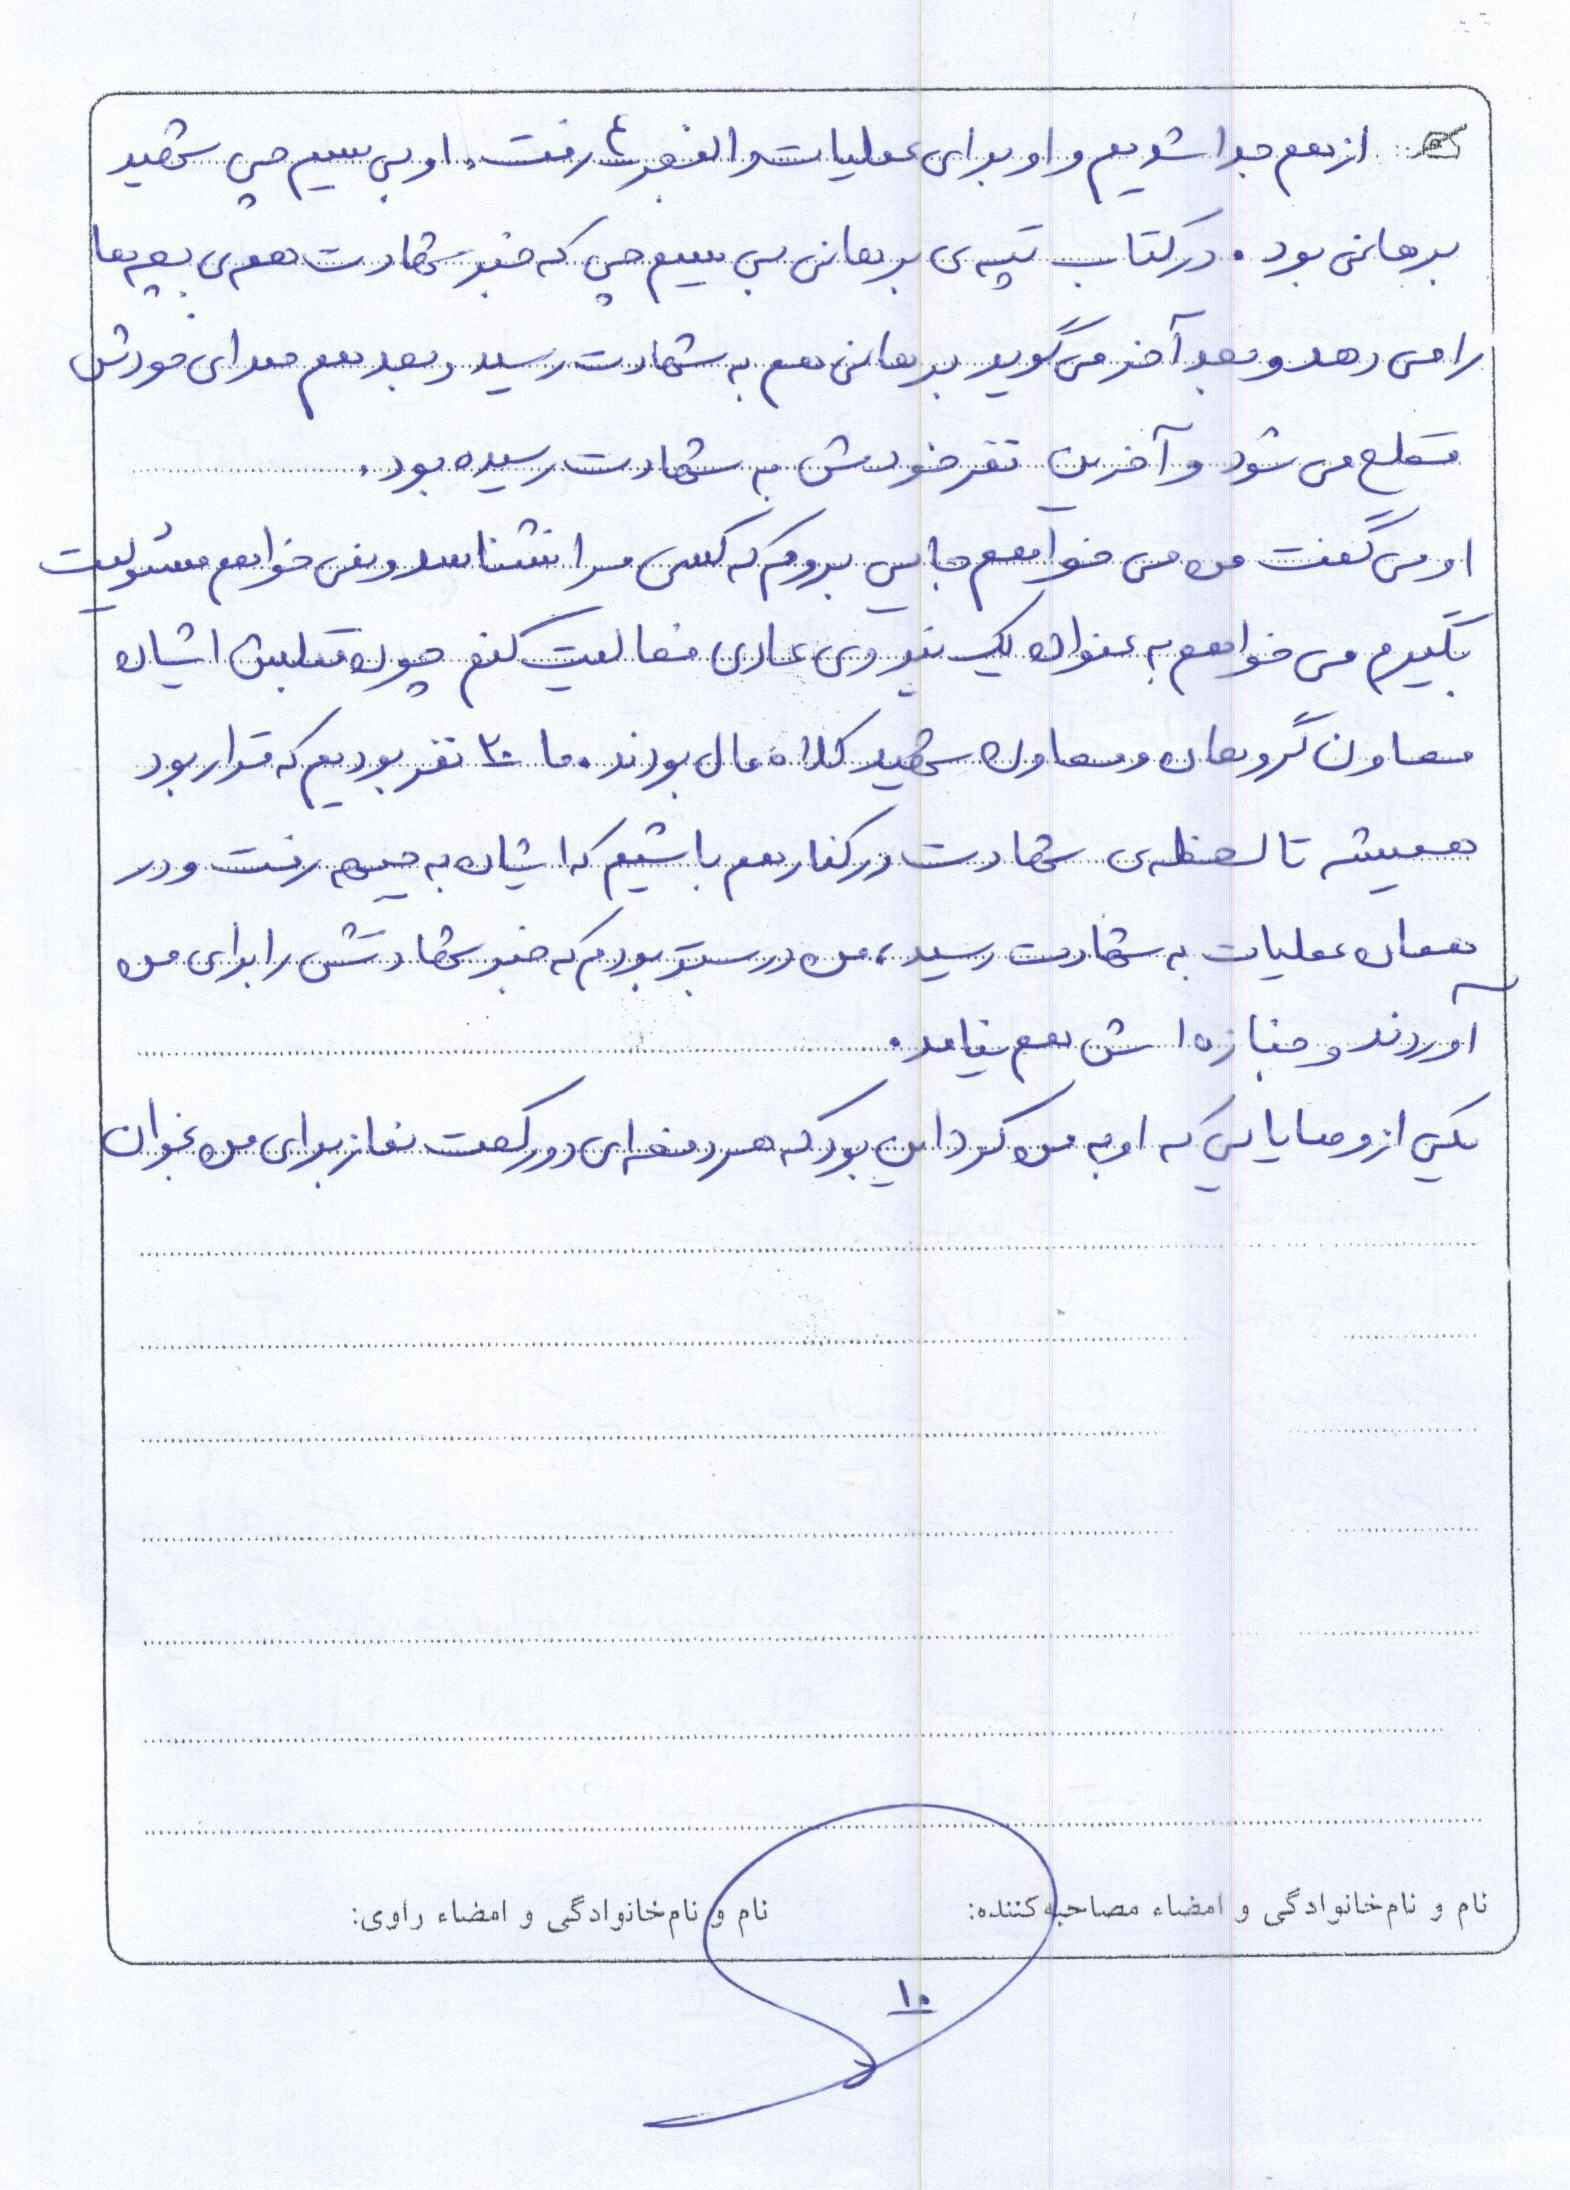 از هم جدا شدیم و او برای عملیات والفجر ۴ رفت. او بی سیم چی شهید
برهانی بود. در کتاب تپه ی برهانی بی سیم چی که خبر شهادت همه ی بچه ها
را می دهد و بعد آخر می گوید برهانی هم به شهادت رسید و بعد هم صدای خودش
قطع می شود و آخرین نفر خودش به شهادت رسیده بود.
او می گفت من می خواهم جایی بروم که کسی مرا نشناسد و نمی خواهم مسئولیت
بگیرم می خواهم به عنوان یک نیروی عادی فعالیت کنم چون قبلش ایشان
معاون گروهان و معاون شهید کلاه مال بودند. ما ۲۰ نفر بودیم که قرار بود
همیشه تا لحظه ی شهادت در کنار هم باشیم که ایشان به جبهه رفت و در
همان عملیات به شهادت رسید، من در بودم که خبر شهادتش را برای من
آوردند و جنازه اش هم نیامد.
یکی از وصایایی که او به من کرد این بود که هر دفعه ای دو رکعت نماز برای من بخوان
نام و نام خانوادگی و امضاء مصاحبه کننده: نام و نام خانوادگی و امضاء راوی:
۱۰